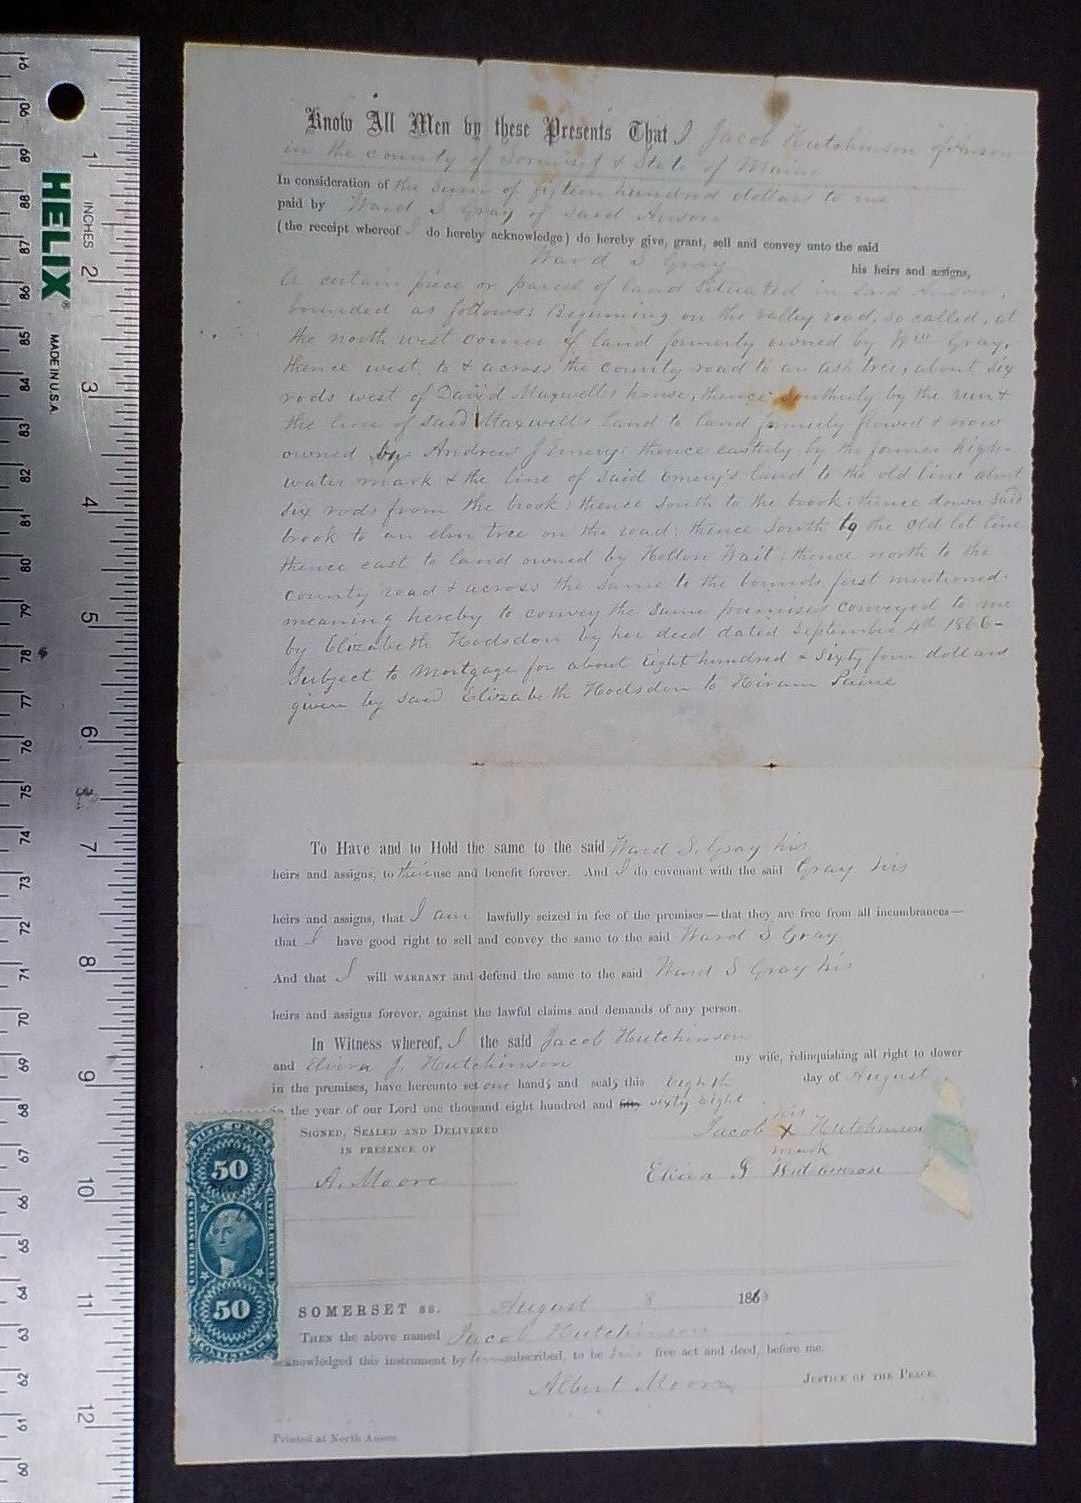 Know All Men by these Presents That I Jacob Hutchinson of Anson
in the county of Somerset & State of Maine
In consideration of the sum of fifteen hundred dollars to me
paid by Ward S Gray of said Anson
(the receipt whereof I do hereby acknowledge) do hereby give, grant, sell and convey unto the said
Ward S Gray his heirs and assigns,
A certain piece or parcel of land situated in said Anson,
bounded as follows: Beginning on the valley road, so called, at
the north west corner of land formerly owned by Wm Gray,
thence west, to & across the county road to an ash tree, about six
rods west of David Maxwell's house, thence southerly by the run &
the line of said Maxwell's land to land formerly flowed & now
owned by Andrew J Emery: thence easterly by the former high-
water mark & the line of said Emery's land to the old line about
six rods from the brook: thence south to the brook: thence down said
brook to an elm tree on the road: thence south to the old lot line
thence east to land owned by Wait: thence north to the
county road & across the same to the bounds first mentioned-
meaning hereby to convey the same premises conveyed to me
by Elizabeth Hodsdon by her deed dated September 4th 1866-
Subject to Mortgage for about Eight hundred & Sixty four dollars
given by said Elizabeth Hodsdon to Hiram Paine
To Have and to Hold the same to the said Ward S. Gray his
heirs and assigns, to their use and benefit forever. And I do covenant with the said Gray his
heirs and assigns, that I am lawfully seized in fee of the premises—that they are free from all incumbrances—
that I have good right to sell and convey the same to the said Ward S Gray
And that I will WARRANT and defend the same to the said Ward S Gray his
heirs and assigns forever, against the lawful claims and demands of any person.
In Witness whereof, I the said Jacob Hutchinson
and Elvira J. Hutchinson my wife, relinquishing all right to dower
in the premises, have hereunto set our hands and seals this Eighth day of August
in the year of our Lord one thousand eight hundred and fifty sixty eight
SIGNED, SEALED AND DELIVERED
IN PRESENCE OF
A. Moore
his
Jacob X Hutchinson
mark
Elvira J Hutchinson
SOMERSET ss. August 8 186
THEN the above named Jacob Hutchinson
acknowledged this instrument by him subscribed, to be his free act and deed, before me
Albert Moore JUSTICE OF THE PEACE
Printed at North Anson
FIFTY CENTS
50
UNITED STATES
INTER. REVENUE
50
CONVEYANCE
HELIX®
MADE IN U.S.A.
INCHES
1
2
3
4
5
6
7
8
9
10
11
12
91
90
89
88
87
86
85
84
83
82
81
80
79
78
77
76
75
74
73
72
71
70
69
68
67
66
65
64
63
62
61
60